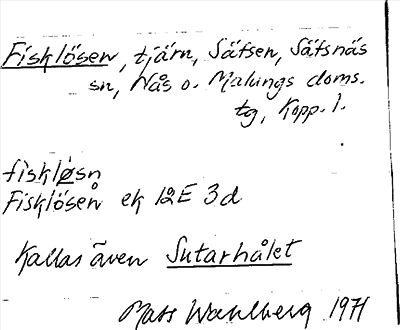 Fisklösen, tjärn, Säfsen, Säfsnäs
sn, Nås o. Malungs doms.
tg, Kopp. l.
fisklø̀sn
Fisklösen ek 12E 3d
Kallas även Sutarhålet
Mats Wahlberg 1971